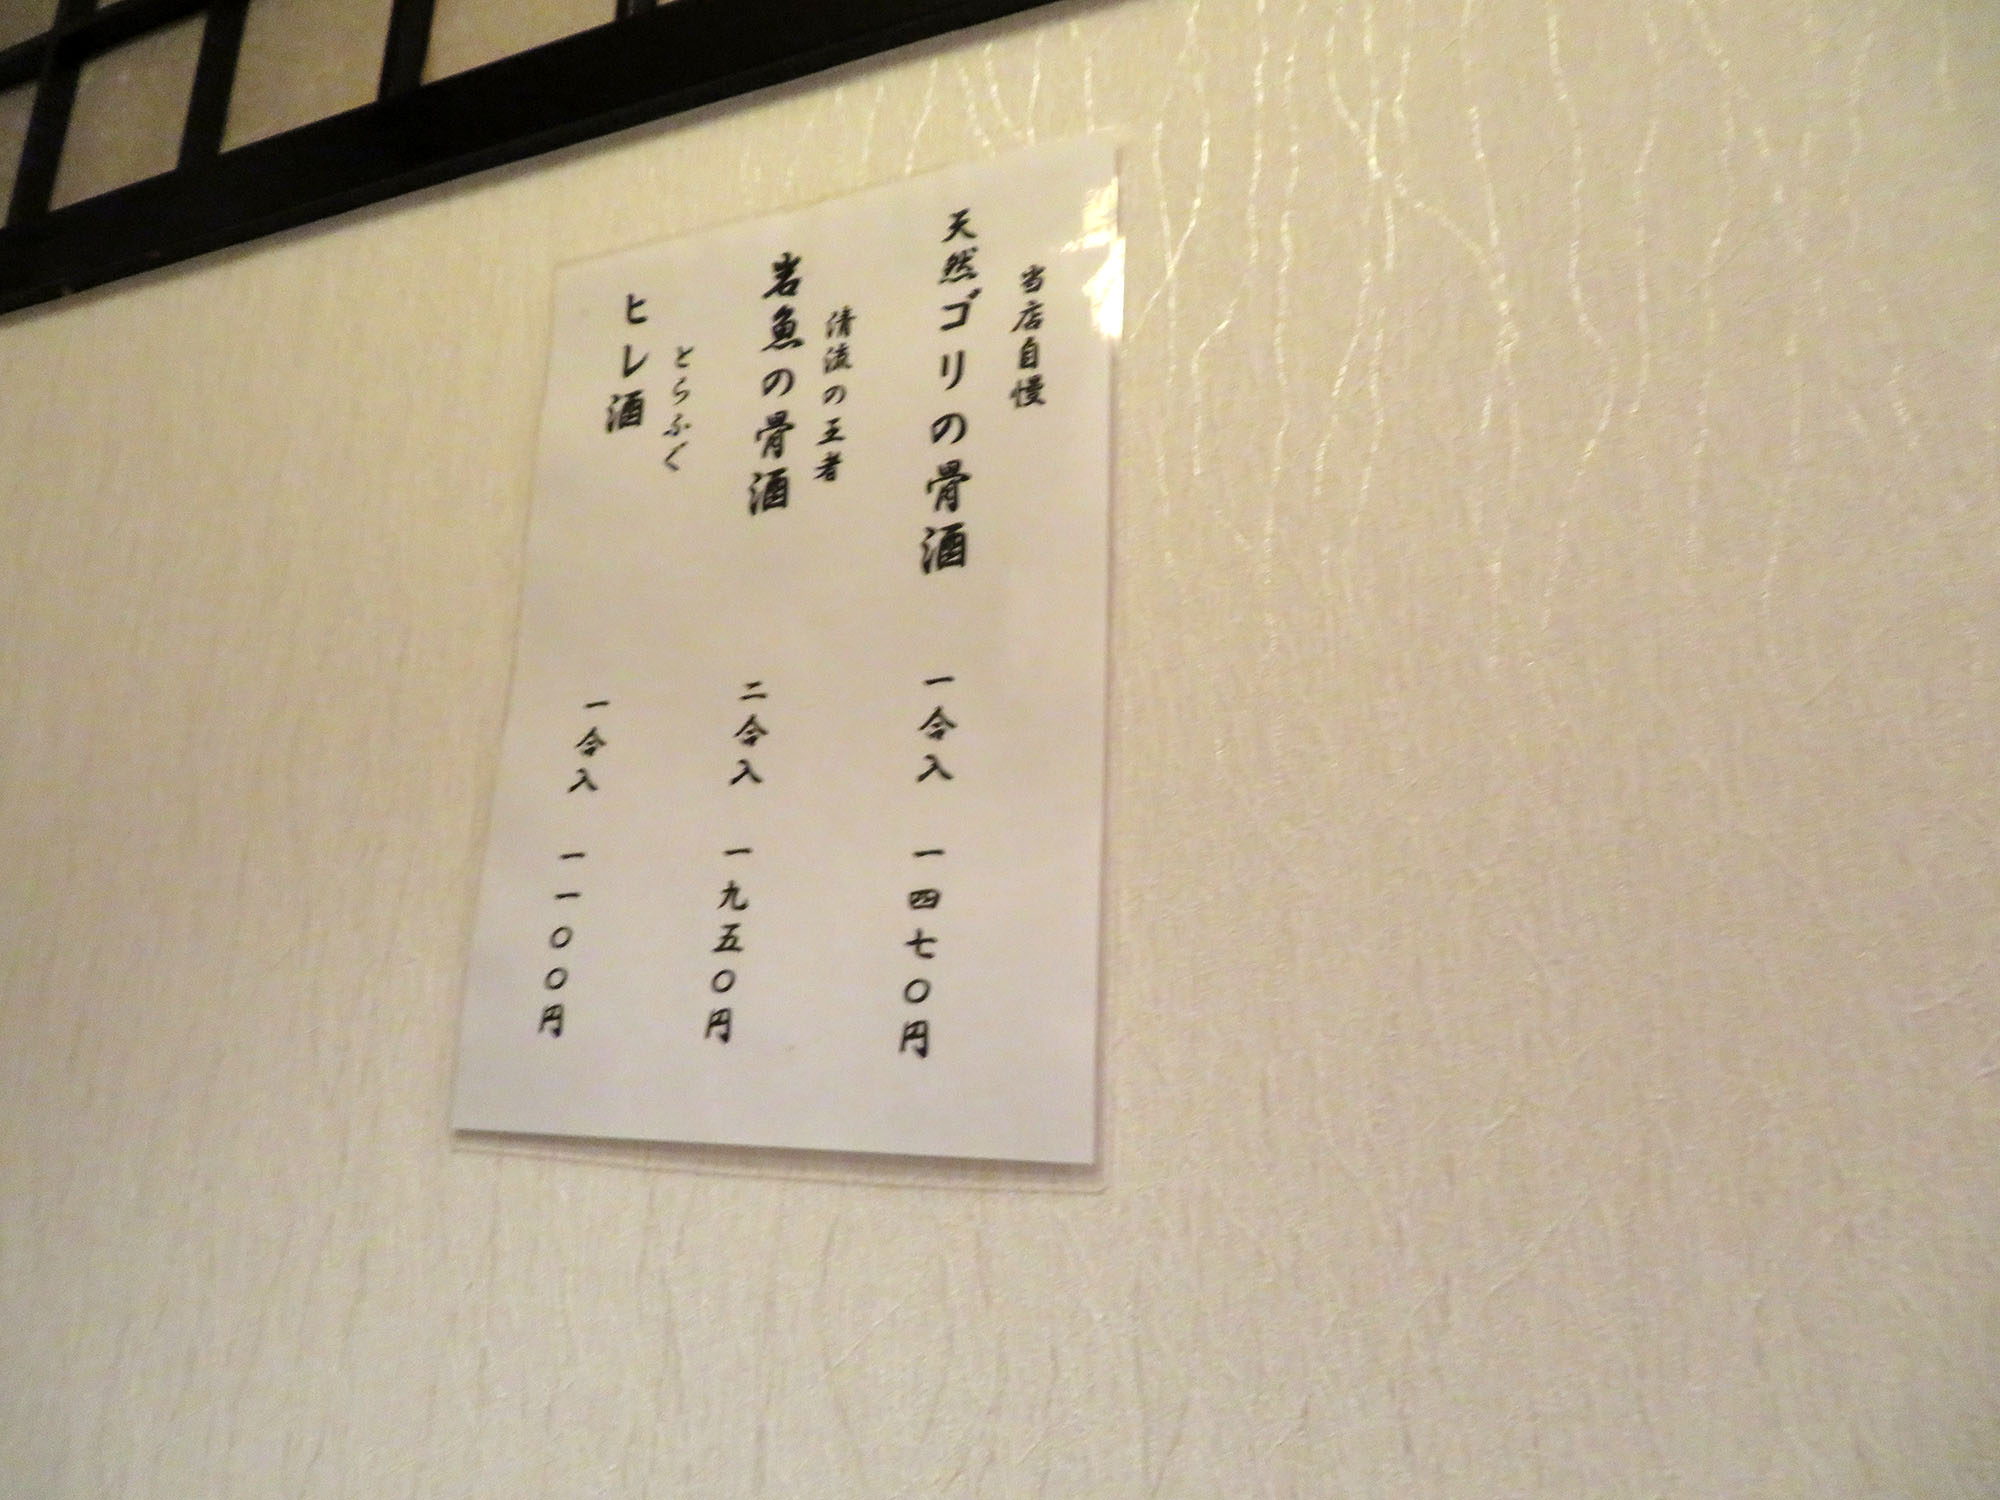 当店自慢
天然ゴリの骨酒 一合入 一四七〇円
清流の王者
岩魚の骨酒 二合入 一九五〇円
とらふぐ
ヒレ酒 一合入 一一〇〇円